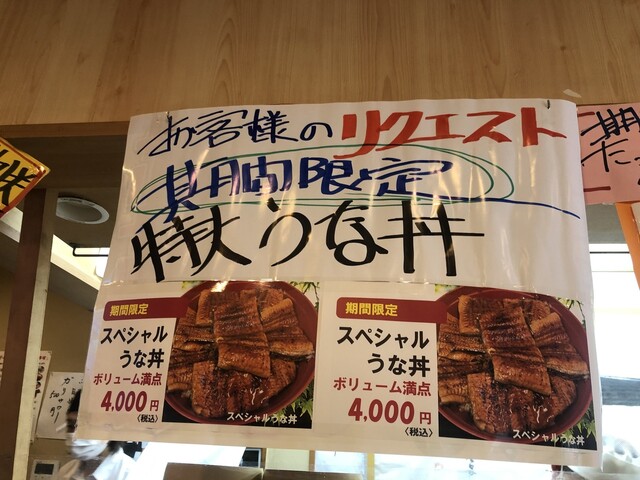 お客様のリクエスト
期間限定
特大うな丼
期間限定
スペシャル
うな丼
ボリューム満点
4,000円
〈税込〉
スペシャルうな丼
期間限定
スペシャル
うな丼
ボリューム満点
4,000円
〈税込〉
スペシャルうな丼
期
た